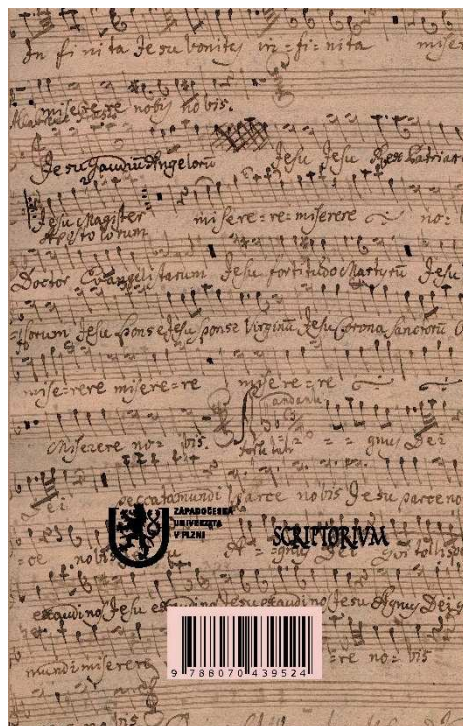 In fi nita Jesu bonitas in=fi=nita mise
miserere nobis nobis.
Jesu Gaudiū Angelorū Jesu Jesu Rex Patriar
Jesu Magister miserere=re=miserere no=
Apostolorum
Doctor Evangelistarum Jesu fortitudo Martyrū Jesu
Jesu sponse Jesu sponse Virginū Jesu Corona Sanctorū
mise=rere misere=re misere=re
Miserere no= bis. = = gnus Dei
peccata mundi parce nobis Jesu parce no
ZÁPADOČESKÁ
UNIVERZITA
V PLZNI
SCRIPTORIVM
=ce nobis A=gnus Dei qui tollis
exaudi no Jesu exaudi no Jesu exaudi no Jesu Agnus Dei
mundi miserere =re no= bis
9 788070 439524